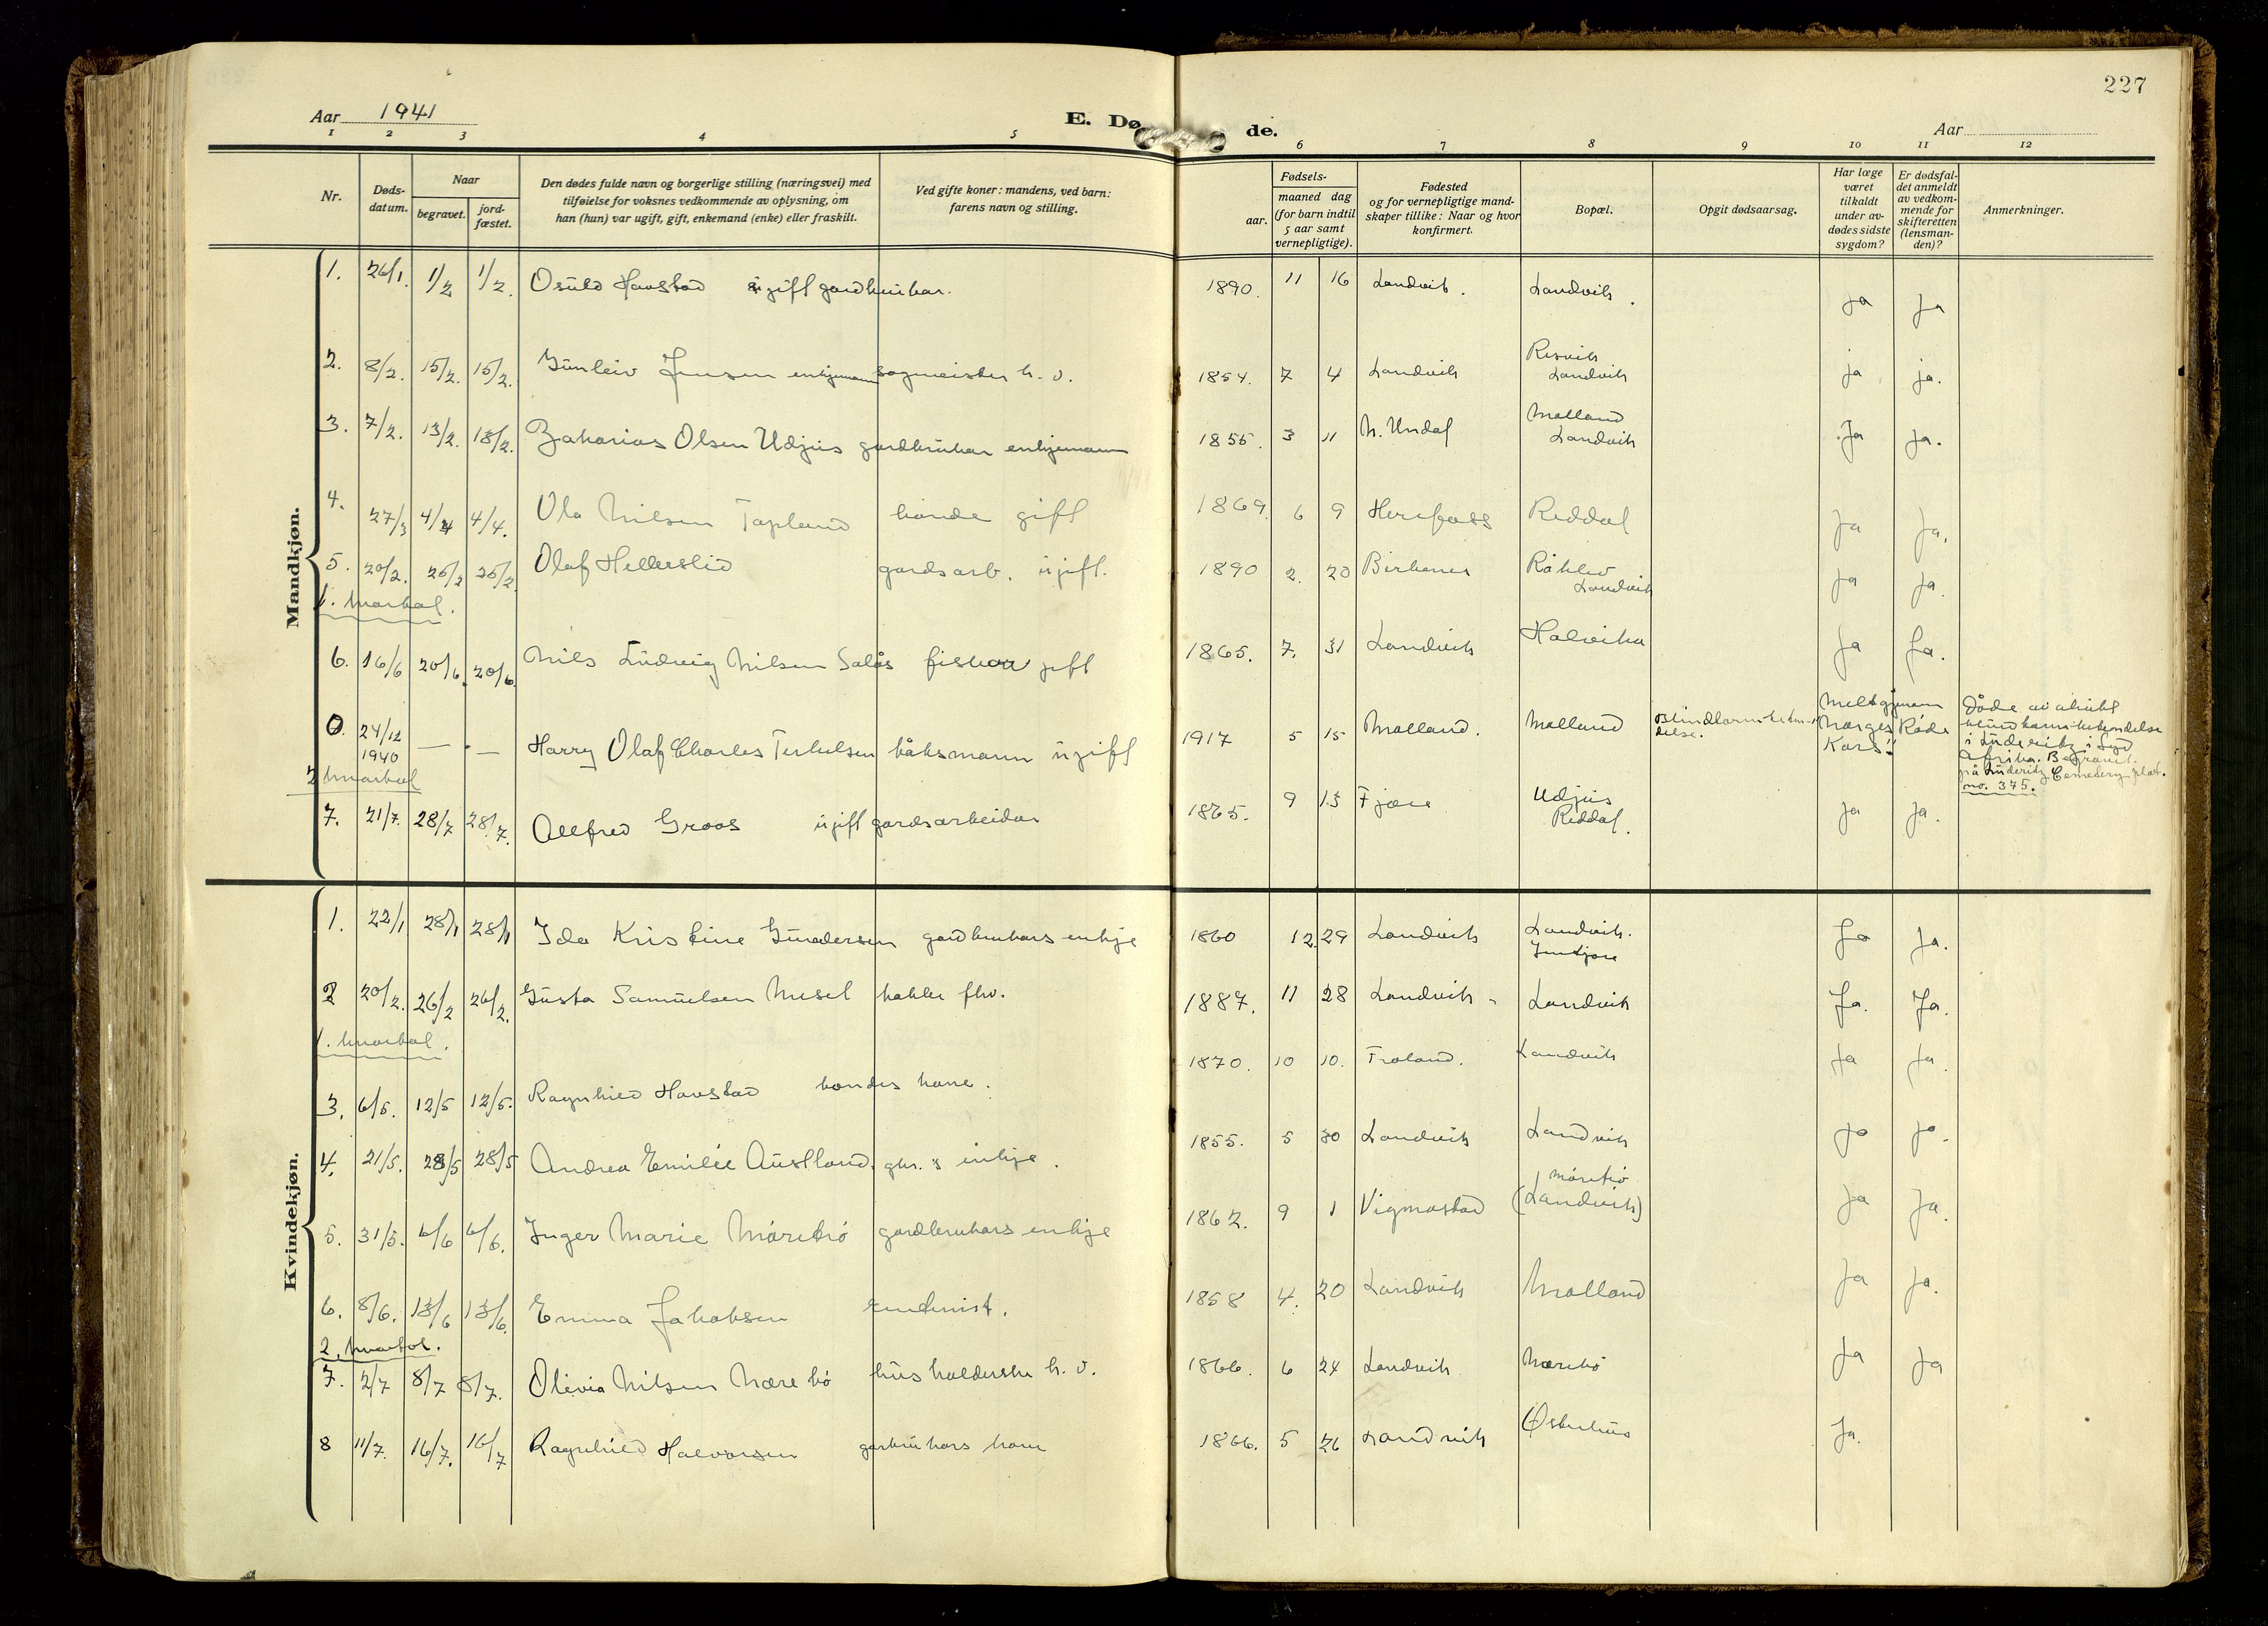 227
Aar 1941 E. Dø de. Aar
1 2 3 4 5 6 7 8 9 10 11 12
Nr.
Døds-
datum.
Naar
begravet.
jord-
fæstet.
Den dødes fulde navn og borgerlige stilling (næringsvei) med
tilføielse for voksnes vedkommende av oplysning, om
han (hun) var ugift, gift, enkemand (enke) eller fraskilt.
Ved gifte koner: mandens, ved barn:
farens navn og stilling.
Fødsels-
aar.
maaned dag
(for barn indtil
5 aar samt
vernepligtige).
Fødested
og for vernepligtige mand-
skaper tillike: Naar og hvor
konfirmert.
Bopæl.
Opgit dødsaarsag.
Har læge
været
tilkaldt
under av-
dødes sidste
sygdom?
Er dødsfal-
det anmeldt
av vedkom-
mende for
skifteretten
(lensman-
den)?
Anmerkninger.
Mandkjøn.
1. 26/1. 1/2 1/2. Osuld Havstad ugift gardbrukar. 1890. 11 16 Landvik. Landvik. ja ja
2. 8/2. 15/2. 15/2. Gunleiv Jensen enkjemann sagmeister h. v. 1854. 7 4 Landvik Resvik
Landvik ja ja.
3. 7/2. 13/2. 13/2. Zakarias Olsen Udjus gardbrukar enkjemann 1855. 3 11 N. Undal Molland
Landvik Ja ja.
4. 27/3 4/4 4/4. Ola Nilsen Tapland bonde gift 1869. 6 9 Herefoss Reddal ja ja.
5. 20/2. 26/2 26/2 Olaf Hellerslid gardsarb. ugift. 1890 2. 20 Birkenes Råhlev
Landvik ja ja.
1. kvartal.
6. 16/6 20/6. 20/6. Nils Ludvig Nilsen Salås fiskar gift 1865. 7. 31 Landvik Halvika ja ja.
0. 24/12
1940 — . — Harry Olaf Charles Terkelsen båtsmann ugift 1917 5 15 Molland. Molland Blindtarmbeten-
delse. Melt gjenom
Norges Røde
Kors! Døde av akutt
blindtarmbetendelse
i Lüderitz i Syd
Afrika. Begravet
på Lüderitz Cemetery plot.
no. 375.
2 kvartal
7. 21/7. 28/7 28/7. Allfred Groos ugift gardsarbeidar 1865. 9 13 Fjære Udjus
Reddal. ja ja.
Kvindekjøn.
1. 22/1 28/1 28/1 Ida Kristine Gundersen gardbrukars enkje 1860 12. 29 Landvik Landvik. Ja ja.
2 20/2. 26/2 26/2. Gusta Samuelsen Mesel fhv. 1887. 11 28 Landvik Landvik Ja. Ja.
1. kvartal.
3. 6/5. 12/5 12/5. Ragnhild Havstad bondes kone. 1870. 10 10. Froland. Landvik ja ja.
4. 21/5. 28/5 28/5 Andrea Emilie Austland. gbr.s enkje. 1855. 5 30 Landvik Landvik ja ja.
5. 31/5. 6/6 6/6. Inger Marie Mørebø gardbrukars enkje 1862. 9 1 Vigmostad Mørebø
(Landvik) ja ja.
6. 8/6. 13/6 13/6. Emma Jakobsen 1858 4. 20 Landvik Molland ja ja.
2. kvartal.
7. 2/7 8/7 8/7. Olivia Nilsen Mørebø husholderske h. v. 1866. 6 24 Landvik Mørebø ja ja
8 11/7. 16/7. 16/7 Ragnhild Halvorsen garbrukars kone 1866. 5 26 Landvik Østerhus Ja.